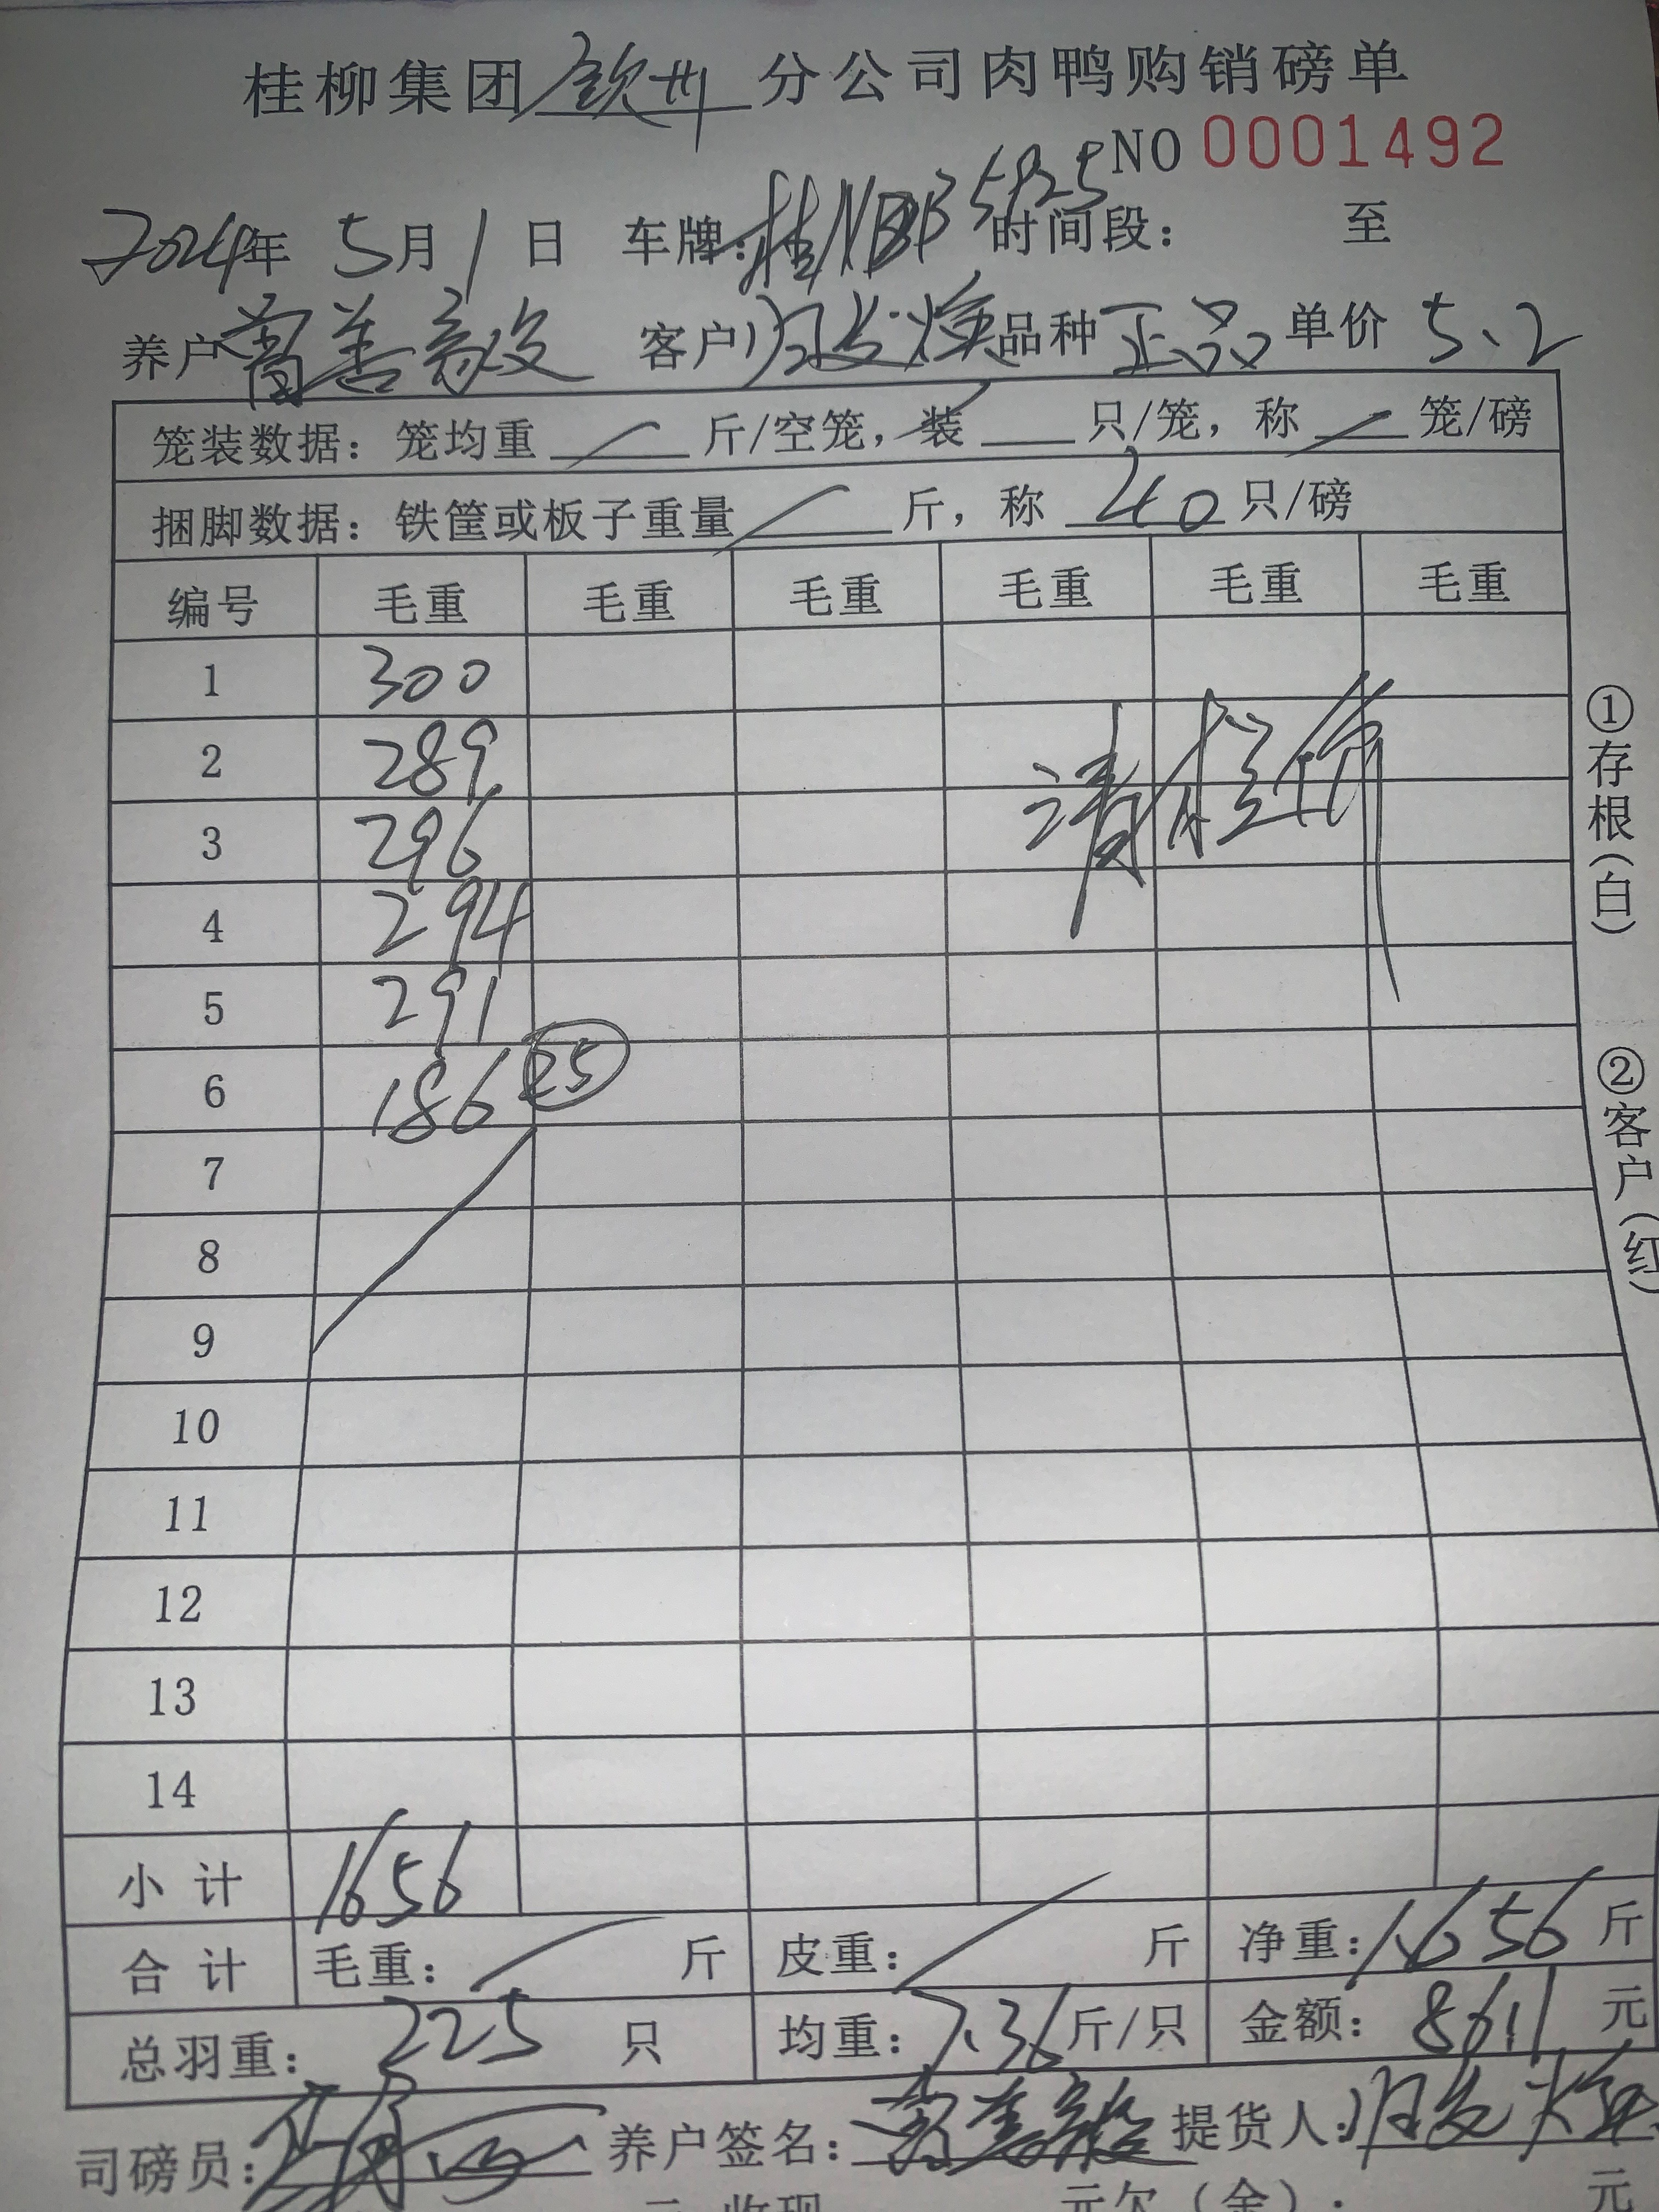 桂柳集团钦州分公司肉鸭购销磅单
NO 0001492
2024年 5月1日 车牌:桂NBB5925 时间段: 至
养户 客户 品种 正品 单价 5、2
笼装数据: 笼均重 斤/空笼, 装 只/笼, 称 笼/磅
捆脚数据: 铁筐或板子重量 斤, 称 40 只/磅
编号 毛重 毛重 毛重 毛重 毛重 毛重
1 300
2 289
3 296
4 294
5 291
6 186 25
7
8
9
10
11
12
13
14
小计 1656
合计 毛重: 斤 皮重: 斤 净重: 1656 斤
总羽重: 225 只 均重: 7.36 斤/只 金额: 8611 元
司磅员: 养户签名: 提货人:
元欠(金): 元
①存根(白)
②客户(红)